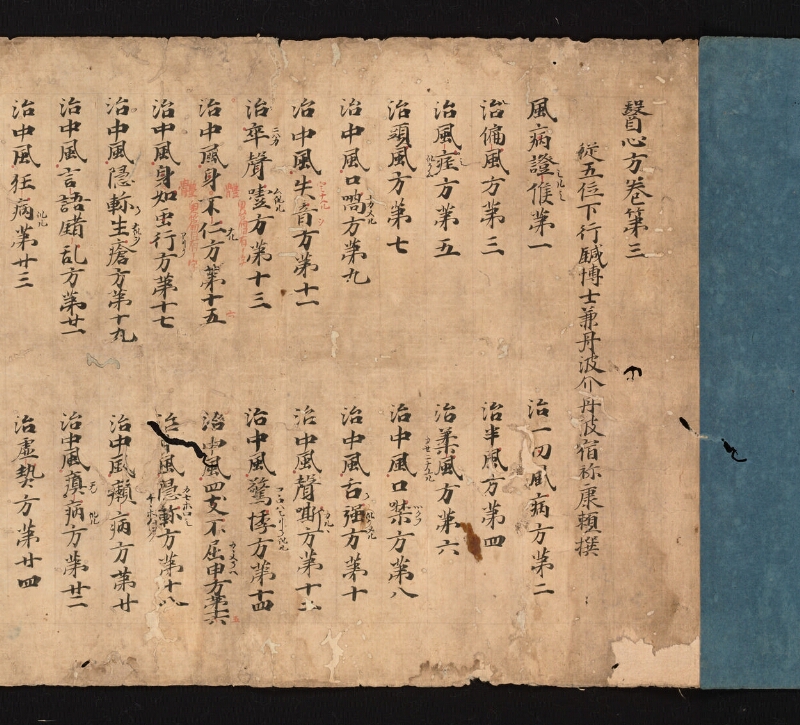 醫心方卷第三
從五位下行鍼博士兼丹波介丹波宿祢康頼撰
風病證候第一
治一切風病方第二
治偏風方第三
治半風方第四
治風痙方第五
治柔風方第六
治頭風方第七
治中風口噤方第八
治中風口喎方第九
治中風舌强方第十
治中風失音方第十一
治中風聲嘶方第十二
治卒聲噎方第十三
治中風驚悸方第十四
治中風身不仁方第十五
治中風四支不屈申方第十六
治中風身如虫行方第十七
治中風隱軫方第十八
治中風隱軫生瘡方第十九
治中風癩病方第廿
治中風言語錯乱方第廿一
治中風癲病方第廿二
治中風狂病第廿三
治虛熱方第廿四